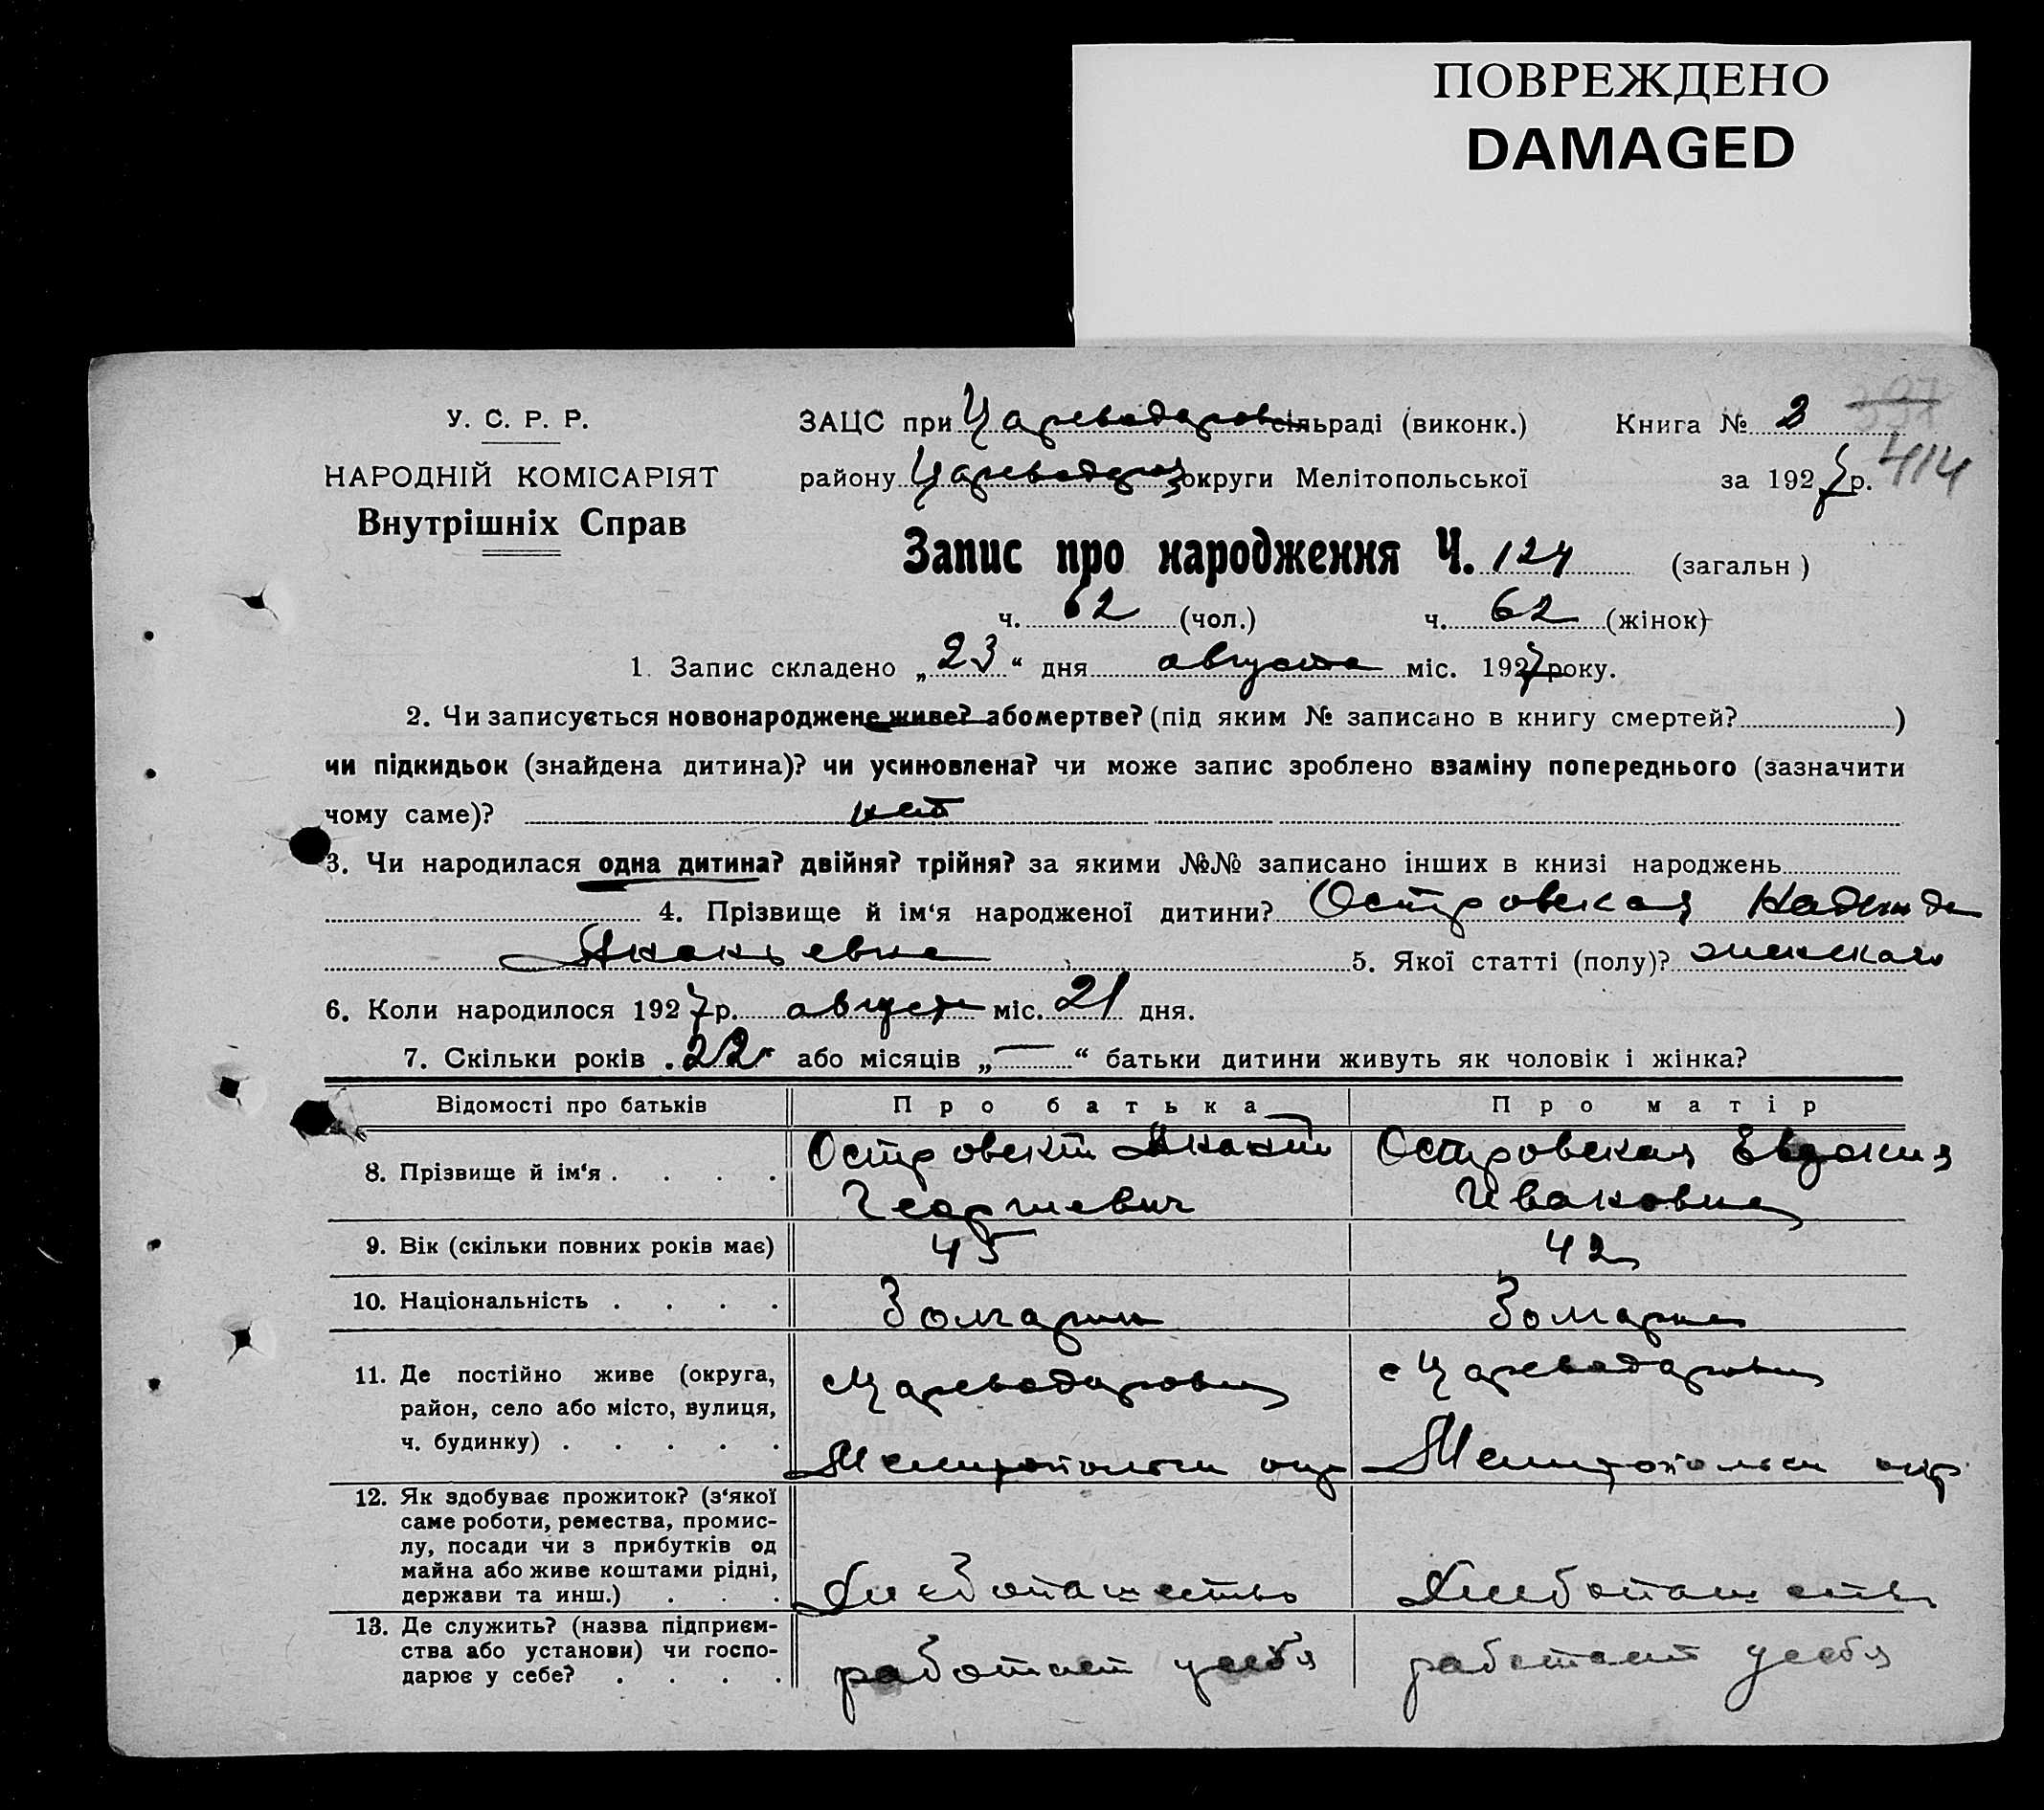 ПОВРЕЖДЕНО
DAMAGED
У. С. Р. Р.
НАРОДНІЙ КОМІСАРІЯТ
Внутрішніх Справ
ЗАЦС при Цареводаров сільраді (виконк.) Книга № 397
району округи Мелітопольської за 1927 р. 414
Запис про народження Ч. 124 (загальн)
ч. 62 (чол.) ч. 62 (жінок)
1. Запис складено „23“ дня августа міс. 1927 року.
2. Чи записується новонароджене живе? або мертве? (під яким № записано в книгу смертей? )
чи підкидьок (знайдена дитина)? чи усиновлена? чи може запис зроблено взаміну попереднього (зазначити
чому саме)? нет
3. Чи народилася одна дитина? двійня? трійня? за якими №№ записано інших в книзі народжень
4. Прізвище й ім‘я народженої дитини? Островская Надежда
5. Якої статті (полу)? женскаго
6. Коли народилося 1927 р. август міс. 21 дня.
7. Скільки років 22 або місяців „—“ батьки дитини живуть як чоловік і жінка?
Відомості про батьків Про батька Про матір
8. Прізвище й ім‘я . . . . Островский Островская Евдокия
Георгиевич Ивановна
9. Вік (скільки повних років має) 45 42
10. Національність . . . . Болгарин Болгарка
11. Де постійно живе (округа,
район, село або місто, вулиця,
ч. будинку) . . . . .
12. Як здобуває прожиток? (з‘якої
саме роботи, ремества, промис-
лу, посади чи з прибутків од
майна або живе коштами рідні,
держави та инш.) . . . Хлебопашество Хлебопашеств
13. Де служить? (назва підприєм-
ства або установи) чи госпо-
дарює у себе? . . . . работает у себя работает у себя